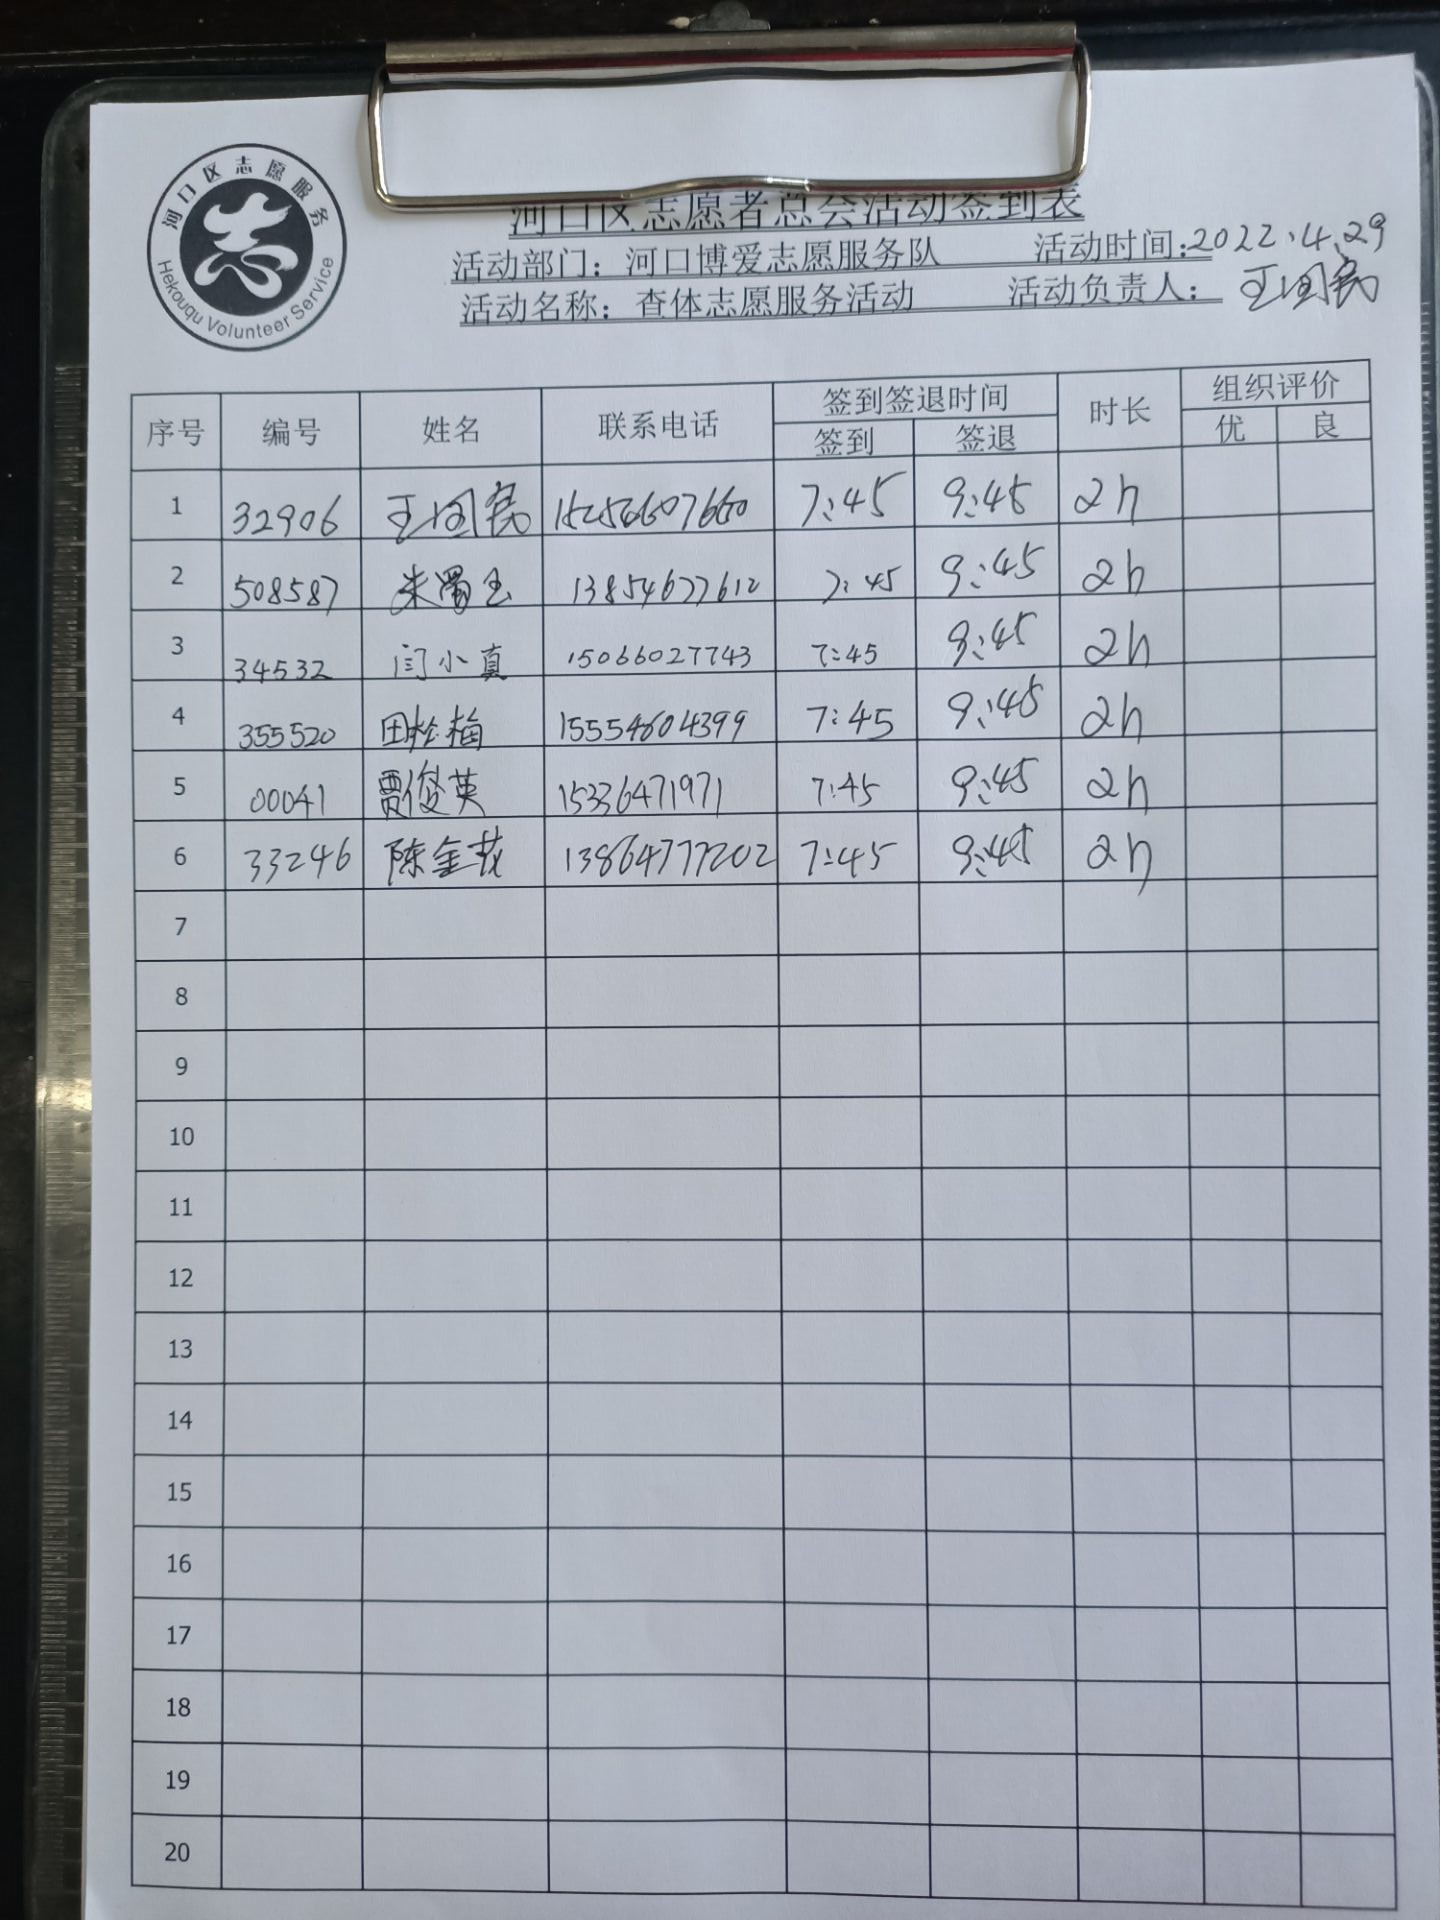 河口区志愿服务
志
Hekouqu Volunteer Service
河口区志愿者总会活动签到表
活动部门：河口博爱志愿服务队 活动时间：2022.4.29
活动名称：查体志愿服务活动 活动负责人：王国民
序号 编号 姓名 联系电话 签到签退时间 时长 组织评价
签到 签退 优 良
1 32906 王国民 7:45 9:45 2h
2 508587 13854677612 7:45 9:45 2h
3 34532 闫小真 15066027743 7:45 9:45 2h
4 355520 田松梅 15554604399 7:45 9:45 2h
5 00041 贾俊英 15336471971 7:45 9:45 2h
6 33246 陈金花 13864777202 7:45 9:45 2h
7
8
9
10
11
12
13
14
15
16
17
18
19
20